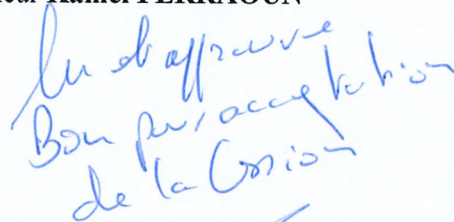 Kamel FERRAOUN
Lu et approuvé
Bon pour acceptation
de la Cession